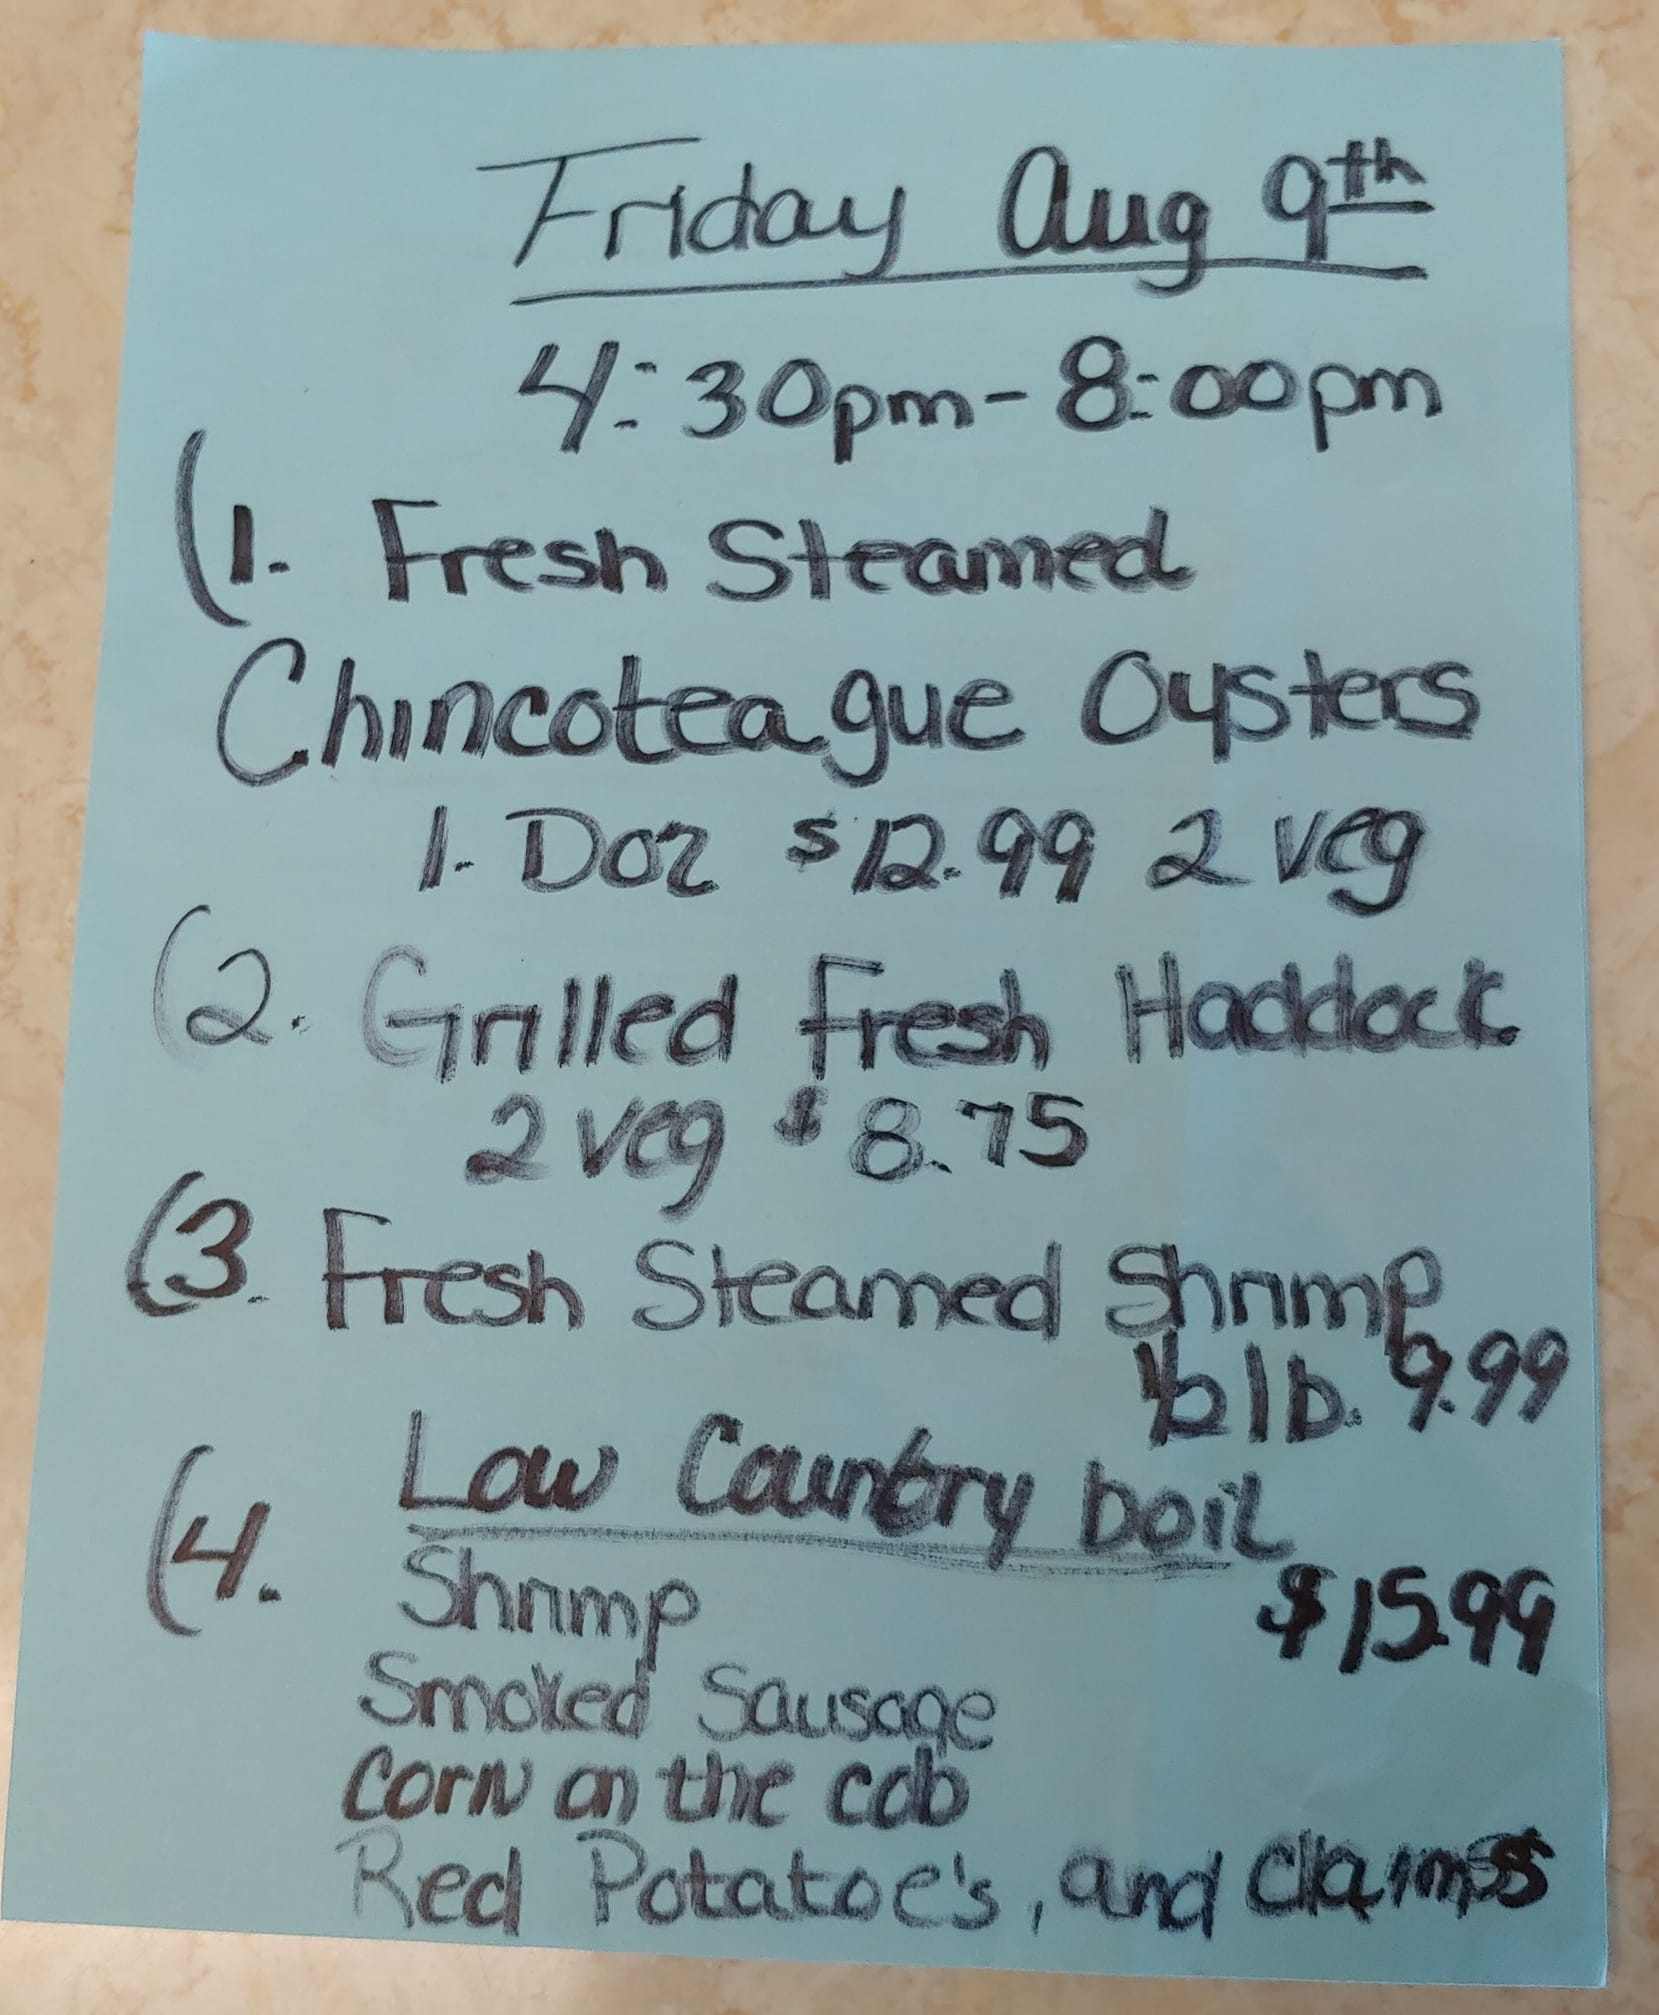 Friday Aug 9th
4:30pm-8:00pm
(1. Fresh Steamed
Chincoteague Oysters
1. Doz $12.99 2 veg
(2. Grilled Fresh Haddock
2 veg $8.75
(3. Fresh Steamed Shrimp
1/2 lb. 9.99
(4. Low Country boil
Shrimp $15.99
Smoked Sausage
Corn on the cob
Red Potatoe's, and Clams